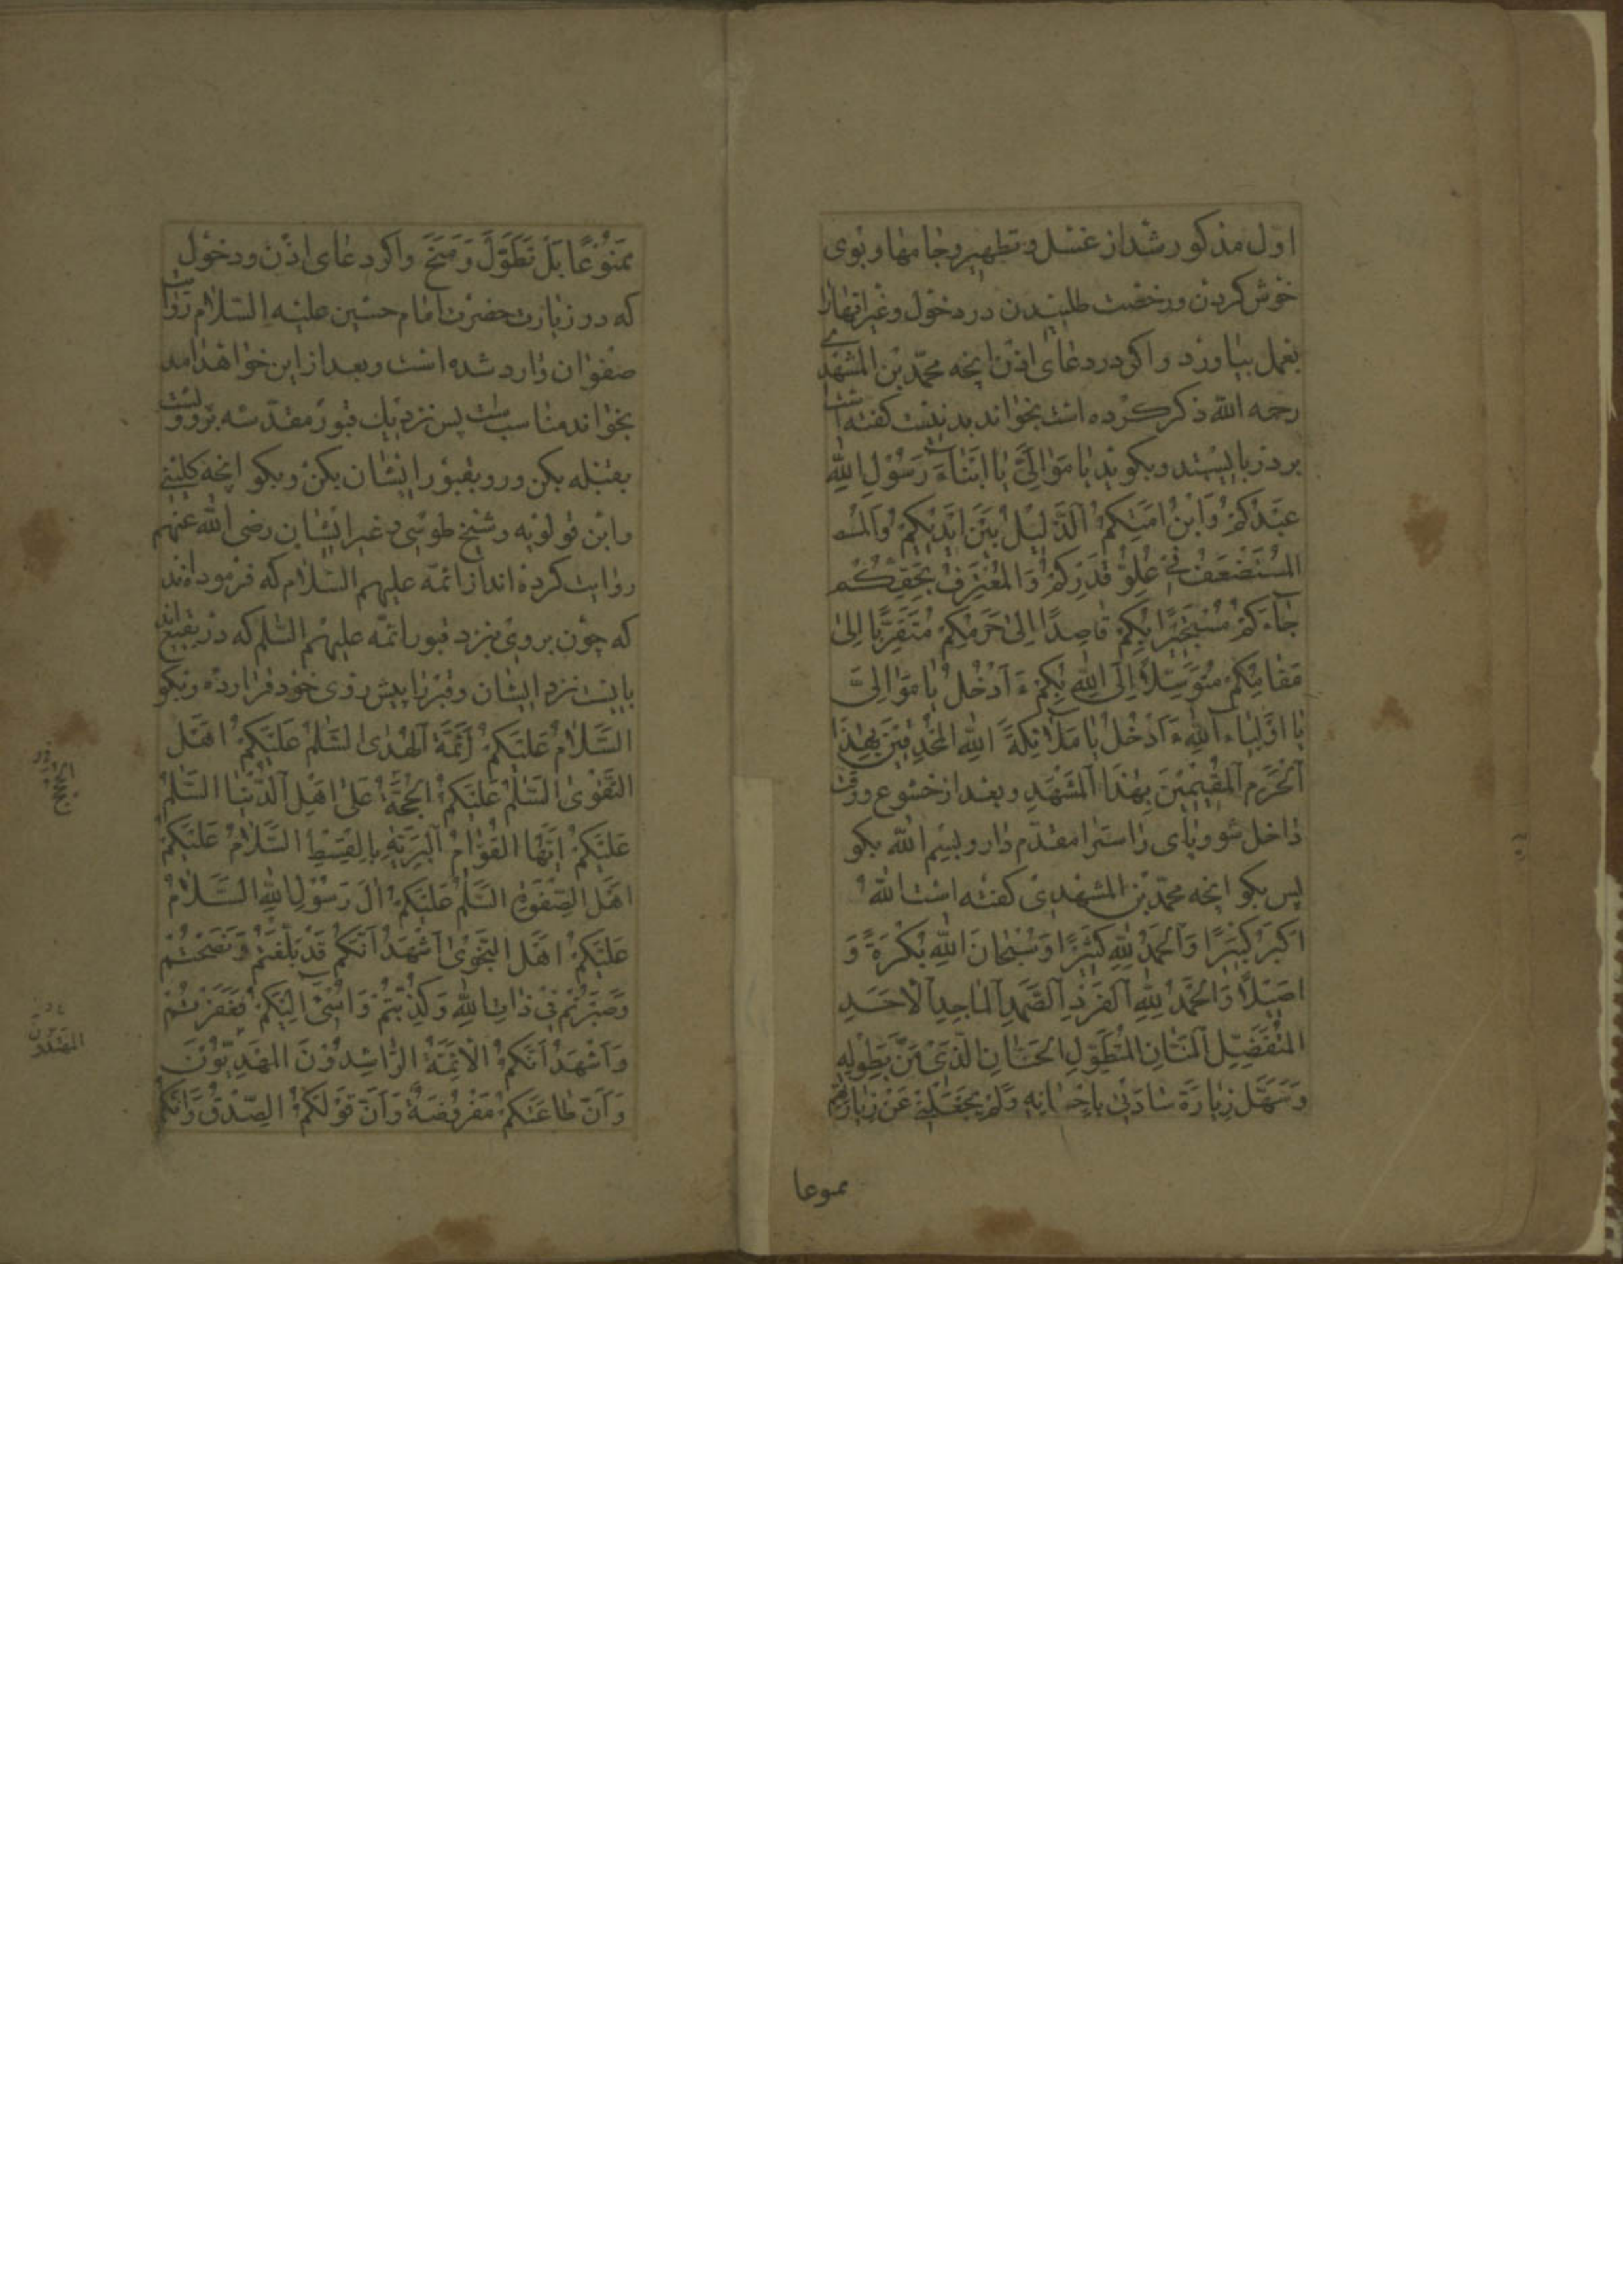 اوّل مذکور شد از غسل و تطهیر و جامها و بوی
خوش کردن و رخصت طلبیدن در دخول و غیر انها را
بعمل بیاورد و اگر در دعای اذن انچه محمّد بن المشهدی
رحمه الله ذکر کرده است بخواند بد نیست گفته است
بر در بایستد و بگوید یا مَوالِیَّ یا اَبْناءَ رَسُوْلِ اللّٰهِ
عَبْدُکُمْ وَابْنُ اَمَتِکُمُ الذَّلِیْلُ بَیْنَ اَیْدِیْکُمْ وَالمُـ
المُسْتَضْعَفُ فِیْ عُلُوِّ قَدْرِکُمْ وَالمُعْتَرِفُ بِحَقِّکُمْ
جٰاءَکُمْ مُسْتَجِیْرًا بِکُمْ قٰاصِدًا اِلیٰ حَرَمِکُمْ مُتَقَرِّبًا اِلیٰ
مَقٰامِکُمْ مُتَوَسِّلًا اِلَی اللّٰهِ بِکُمْ ءَاَدْخُلُ یٰا مَوٰالِیَّ
یٰا اَوْلِیٰاءَ اللّٰهِ ءَاَدْخُلُ یٰا مَلٰائِکَةَ اللّٰهِ المُحْدِقِیْنَ بِهٰذَا
الْحَرَمِ الْمُقِیْمِیْنَ بِهٰذَا الْمَشْهَدِ و بعد از خشوع و رقت
داخل شو و پای راست را مقدّم دار و بسم الله بگو
پس بگو انچه محمّد بن المشهدی گفته است اللّٰهُ
اَکْبَرُ کَبِیْرًا وَالْحَمْدُ لِلّٰهِ کَثِیْرًا وَسُبْحٰانَ اللّٰهِ بُکْرَةً وَ
اَصِیْلًا وَالْحَمْدُ لِلّٰهِ الْفَرْدِ الصَّمَدِ الْمٰاجِدِ الْاَحَدِ
المُتَفَضِّلِ الْمَنّٰانِ المُتَطَوِّلِ الْحَنّٰانِ الَّذِیْ مَنَّ بِطَوْلِهِ
وَسَهَّلَ زِیٰارَةَ سٰادٰتِیْ بِاِحْسٰانِهِ وَلَمْ یَجْعَلْنِیْ عَنْ زِیٰارَتِهِمْ
ممنوعا
مَمْنُوْعًا بَلْ تَطَوَّلَ وَمَنَحَ و اگر دعای اذن و دخول
که در زیارت حضرت امام حسین علیه السلام روایت
صفوان وارد شده است و بعد از این خواهد امد
بخواند مناسب است پس نزدیک قبور مقدّسه برو و پشت
بقبله بکن و رو بقبور ایشان بکن و بگو انچه کلینی
و ابن قولویه و شیخ طوسی و غیر ایشان رضی الله عنهم
روایت کرده اند از ائمّه علیهم السلام که فرموده اند
که چون بروی بنزد قبور ائمّه علیهم السلم که در بقیع اند
بایست نزد ایشان و قبر را پیش روی خود قرار ده و بگو
السَّلٰامُ عَلَیْکُمْ اَئِمَّةَ الْهُدیٰ السَّلٰمُ عَلَیْکُمْ اَهْلَ
التَّقْوٰی السَّلٰمُ عَلَیْکُمُ الْحُجَّةُ عَلیٰ اَهْلِ الدُّنْیٰا السَّلٰمُ
عَلَیْکُمْ اَیُّهَا الْقُوّٰامُ الْبَرِیَّةِ بِالْقِسْطِ السَّلٰامُ عَلَیْکُمْ
اَهْلَ الصَّفْوَةِ السَّلٰمُ عَلَیْکُمْ اٰلَ رَسُوْلِ اللّٰهِ السَّلٰامُ
عَلَیْکُمْ اَهْلَ النَّجْوٰی اَشْهَدُ اَنَّکُمْ قَدْ بَلَّغْتُمْ وَنَصَحْتُمْ
وَصَبَرْتُمْ فِیْ ذٰاتِ اللّٰهِ وَکُذِّبْتُمْ وَاُسِیْءَ اِلَیْکُمْ فَغَفَرْتُمْ
وَاَشْهَدُ اَنَّکُمُ الْاَئِمَّةُ الرّٰاشِدُوْنَ المَهْدِیُّوْنَ
وَاَنَّ طٰاعَتَکُمْ مَفْرُوْضَةٌ وَاَنَّ قَوْلَکُمُ الصِّدْقُ وَاَنَّکُمْ
المهتدون